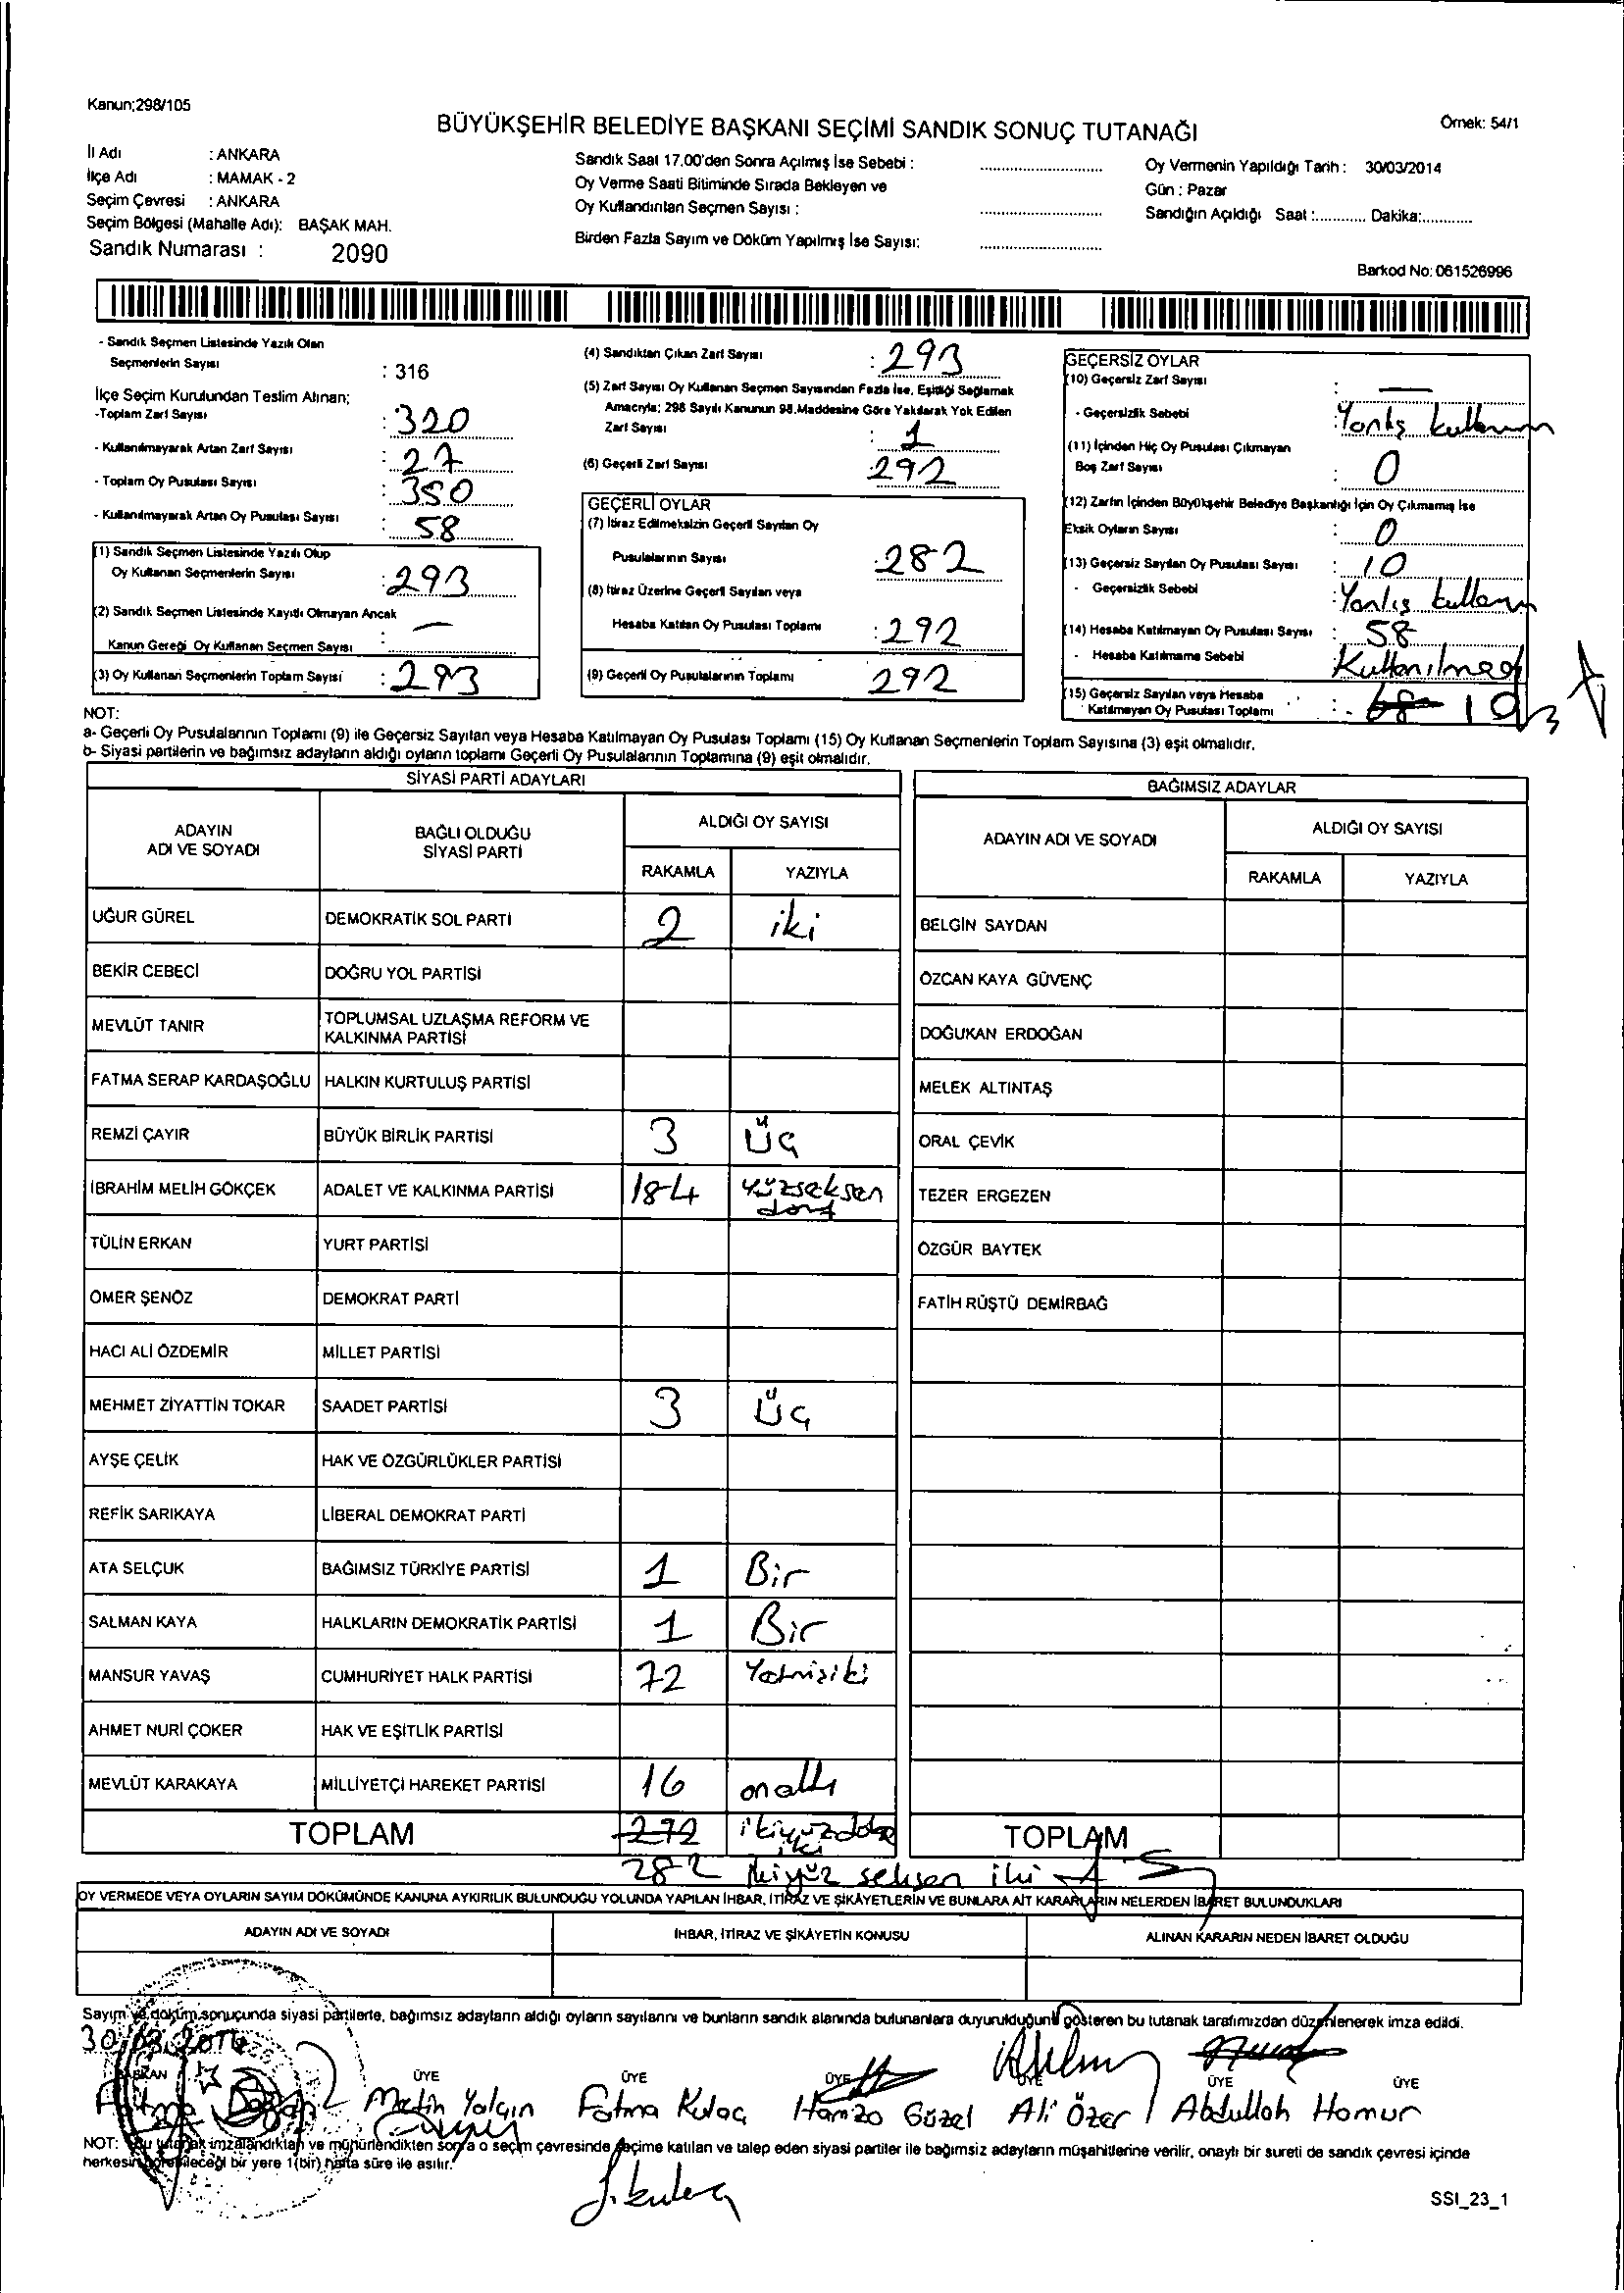 Kanun;298/105
BÜYÜKŞEHİR BELEDİYE BAŞKANI SEÇİMİ SANDIK SONUÇ TUTANAĞI
Örnek: 54/1
İl Adı : ANKARA
İlçe Adı : MAMAK - 2
Seçim Çevresi : ANKARA
Seçim Bölgesi (Mahalle Adı): BAŞAK MAH.
Sandık Numarası : 2090
Sandık Saat 17.00'den Sonra Açılmış İse Sebebi :
Oy Verme Saati Bitiminde Sırada Bekleyen ve
Oy Kullandırılan Seçmen Sayısı :
Birden Fazla Sayım ve Döküm Yapılmış İse Sayısı:
Oy Vermenin Yapıldığı Tarih : 30/03/2014
Gün : Pazar
Sandığın Açıldığı Saat :............ Dakika:............
Barkod No: 061526996
- Sandık Seçmen Listesinde Yazılı Olan
Seçmenlerin Sayısı : 316
İlçe Seçim Kurulundan Teslim Alınan;
-Toplam Zarf Sayısı : 320
- Kullanılmayarak Artan Zarf Sayısı : 27
- Toplam Oy Pusulası Sayısı : 350
- Kullanılmayarak Artan Oy Pusulası Sayısı : 58
(1) Sandık Seçmen Listesinde Yazılı Olup
Oy Kullanan Seçmenlerin Sayısı : 293
(2) Sandık Seçmen Listesinde Kayıtlı Olmayan Ancak
Kanun Gereği Oy Kullanan Seçmen Sayısı : —
(3) Oy Kullanan Seçmenlerin Toplam Sayısı : 293
(4) Sandıktan Çıkan Zarf Sayısı : 293
(5) Zarf Sayısı Oy Kullanan Seçmen Sayısından Fazla İse, Eşitliği Sağlamak
Amacıyla; 298 Sayılı Kanunun 98.Maddesine Göre Yakılarak Yok Edilen
Zarf Sayısı : 1
(6) Geçerli Zarf Sayısı 292
GEÇERLİ OYLAR
(7) İtiraz Edilmeksizin Geçerli Sayılan Oy
Pusulalarının Sayısı : 282
(8) İtiraz Üzerine Geçerli Sayılan veya
Hesaba Katılan Oy Pusulası Toplamı : 292
(9) Geçerli Oy Pusulalarının Toplamı 292
GEÇERSİZ OYLAR
(10) Geçersiz Zarf Sayısı : —
- Geçersizlik Sebebi : Yanlış kullanım
(11) İçinden Hiç Oy Pusulası Çıkmayan
Boş Zarf Sayısı : 0
(12) Zarfın İçinden Büyükşehir Belediye Başkanlığı İçin Oy Çıkmamış İse
Eksik Oyların Sayısı : 0
(13) Geçersiz Sayılan Oy Pusulası Sayısı : 10
- Geçersizlik Sebebi : Yanlış kullanım
(14) Hesaba Katılmayan Oy Pusulası Sayısı : 58
- Hesaba Katılmama Sebebi Kullanılmadı
(15) Geçersiz Sayılan veya Hesaba
Katılmayan Oy Pusulası Toplamı : 68 10
NOT:
a- Geçerli Oy Pusulalarının Toplamı (9) ile Geçersiz Sayılan veya Hesaba Katılmayan Oy Pusulası Toplamı (15) Oy Kullanan Seçmenlerin Toplam Sayısına (3) eşit olmalıdır.
b- Siyasi partilerin ve bağımsız adayların aldığı oyların toplamı Geçerli Oy Pusulalarının Toplamına (9) eşit olmalıdır.
SİYASİ PARTİ ADAYLARI
ADAYIN ADI VE SOYADI BAĞLI OLDUĞU SİYASİ PARTİ ALDIĞI OY SAYISI
RAKAMLA YAZIYLA
UĞUR GÜREL DEMOKRATİK SOL PARTİ 2 iki
BEKİR CEBECİ DOĞRU YOL PARTİSİ
MEVLÜT TANIR TOPLUMSAL UZLAŞMA REFORM VE KALKINMA PARTİSİ
FATMA SERAP KARDAŞOĞLU HALKIN KURTULUŞ PARTİSİ
REMZİ ÇAYIR BÜYÜK BİRLİK PARTİSİ 3 Üç
İBRAHİM MELİH GÖKÇEK ADALET VE KALKINMA PARTİSİ 184 yüzseksen dört
TÜLİN ERKAN YURT PARTİSİ
ÖMER ŞENÖZ DEMOKRAT PARTİ
HACI ALİ ÖZDEMİR MİLLET PARTİSİ
MEHMET ZİYATTİN TOKAR SAADET PARTİSİ 3 Üç
AYŞE ÇELİK HAK VE ÖZGÜRLÜKLER PARTİSİ
REFİK SARIKAYA LİBERAL DEMOKRAT PARTİ
ATA SELÇUK BAĞIMSIZ TÜRKİYE PARTİSİ 1 Bir
SALMAN KAYA HALKLARIN DEMOKRATİK PARTİSİ 1 Bir
MANSUR YAVAŞ CUMHURİYET HALK PARTİSİ 72 Yetmişiki
AHMET NURİ ÇOKER HAK VE EŞİTLİK PARTİSİ
MEVLÜT KARAKAYA MİLLİYETÇİ HAREKET PARTİSİ 16 onaltı
TOPLAM 272
282 ikiyüz seksen iki
BAĞIMSIZ ADAYLAR
ADAYIN ADI VE SOYADI ALDIĞI OY SAYISI
RAKAMLA YAZIYLA
BELGİN SAYDAN
ÖZCAN KAYA GÜVENÇ
DOĞUKAN ERDOĞAN
MELEK ALTINTAŞ
ORAL ÇEVİK
TEZER ERGEZEN
ÖZGÜR BAYTEK
FATİH RÜŞTÜ DEMİRBAĞ
TOPLAM
OY VERMEDE VEYA OYLARIN SAYIM DÖKÜMÜNDE KANUNA AYKIRILIK BULUNDUĞU YOLUNDA YAPILAN İHBAR, İTİRAZ VE ŞİKAYETLERİN VE BUNLARA AİT KARARLARIN NELERDEN İBARET BULUNDUKLARI
ADAYIN ADI VE SOYADI İHBAR, İTİRAZ VE ŞİKAYETİN KONUSU ALINAN KARARIN NEDEN İBARET OLDUĞU
Sayım ve döküm sonuçunda siyasi partilerle, bağımsız adayların aldığı oyların sayılarını ve bunların sandık alanında bulunanlara duyurulduğunu gösteren bu tutanak tarafımızdan düzenlenerek imza edildi.
30.03.2014
BAŞKAN ÜYE ÜYE ÜYE ÜYE ÜYE ÜYE
Fatma Metin Yalçın Fatma Kulaç Hamza Güzel Ali Özer Abdullah Homur
NOT: Bu tutanak imzalandıktan ve mühürlendikten sonra o seçim çevresinde seçime katılan ve talep eden siyasi partiler ile bağımsız adayların müşahitlerine verilir, onaylı bir sureti de sandık çevresi içinde
herkesin görebileceği bir yere 1(bir) hafta süre ile asılır.
SSI_23_1